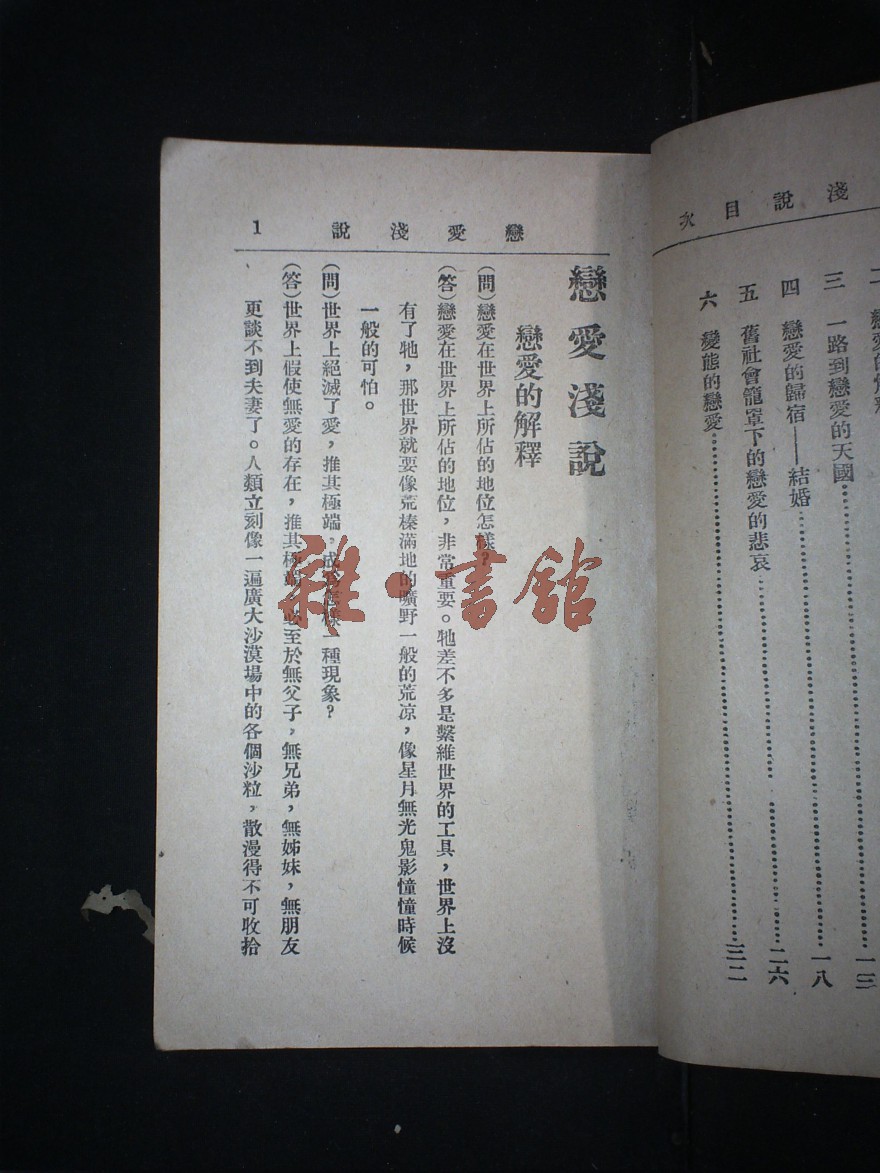 淺說目次
三 一路到戀愛的天國………一三
四 戀愛的歸宿——結婚………一八
五 舊社會籠罩下的戀愛的悲哀………二六
六 變態的戀愛………三二
戀愛淺說 1
戀愛淺說
戀愛的解釋
(問)戀愛在世界上所佔的地位怎樣？
(答)戀愛在世界上所佔的地位，非常重要。牠差不多是繫維世界的工具，世界上沒
有了牠，那世界就要像荒榛滿地的曠野一般的荒凉，像星月無光鬼影憧憧時候
一般的可怕。
(問)世界上絕滅了愛，推其極端，成爲怎樣一種現象？
(答)世界上假使無愛的存在，推其極端，必至於無父子，無兄弟，無姊妹，無朋友
更談不到夫妻了。人類立刻像一遍廣大沙漠場中的各個沙粒，散漫得不可收拾
雜·書館